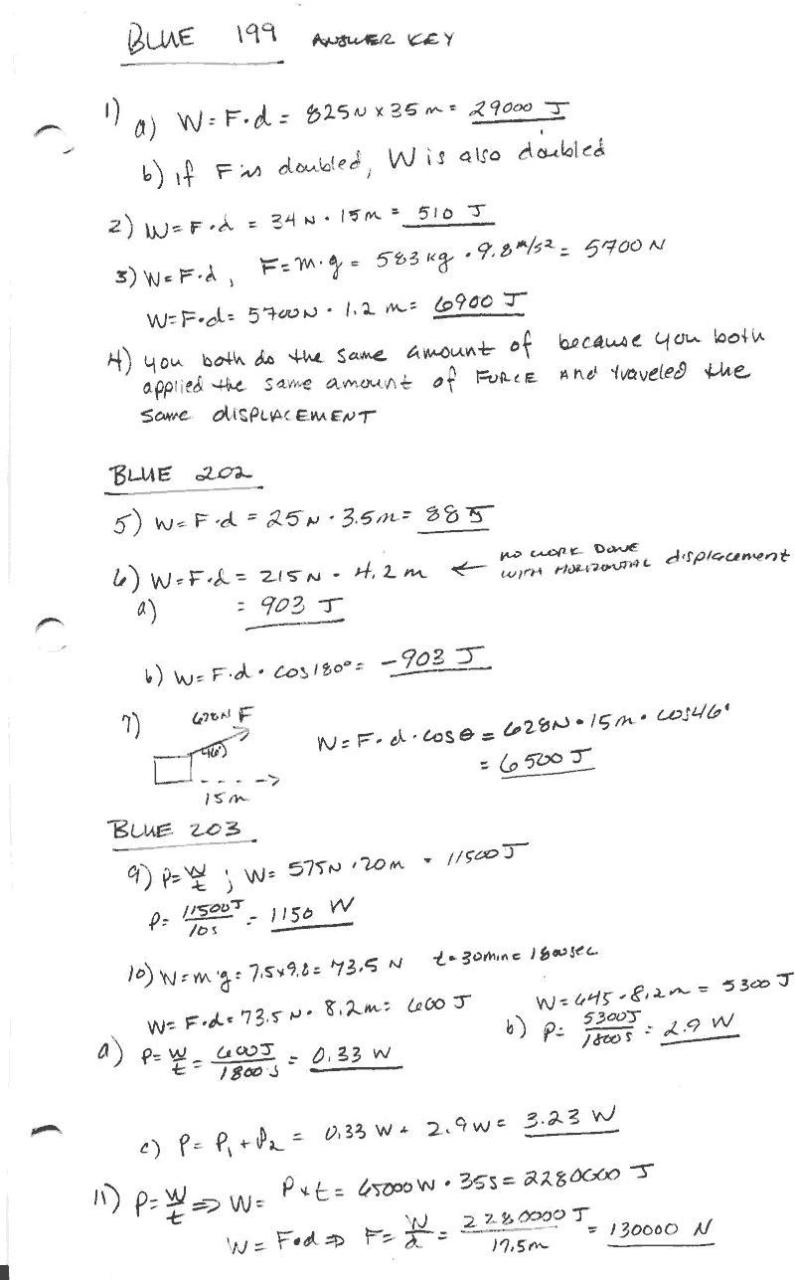 BLUE 199 ANSWER KEY
1) a) W = F·d = 825 N x 35 m = 29000 J
b) if F is doubled, W is also doubled
2) W = F·d = 34 N · 15 m = 510 J
3) W = F·d, F = m·g = 583 kg · 9.8 m/s2 = 5700 N
W = F·d = 5700 N · 1.2 m = 6900 J
4) you both do the same amount of because you both
applied the same amount of FORCE And traveled the
same DISPLACEMENT
BLUE 202
5) W = F·d = 25 N · 3.5 m = 88 J
6) W = F·d = 215 N · 4.2 m ← NO WORK DONE
WITH HORIZONTAL displacement
a) = 903 J
b) W = F·d · cos180° = -903 J
7) 628N F
46°
15 m
W = F·d·cosθ = 628N · 15 m · cos46°
= 6500 J
BLUE 203
9) P = W/t ; W = 575N · 20m = 11500 J
P = 11500J/10s = 1150 W
10) W = m·g = 7.5 x 9.8 = 73.5 N t = 30min = 1800sec
W = F·d = 73.5 N · 8.2 m = 600 J
a) P = W/t = 600J/1800s = 0.33 W
W = 645 · 8.2 m = 5300 J
b) P = 5300J/1800s = 2.9 W
c) P = P1 + P2 = 0.33 W + 2.9 W = 3.23 W
11) P = W/t ⇒ W = P x t = 65000 W · 35 s = 2280000 J
W = F·d ⇒ F = W/d = 2280000 J/17.5m = 130000 N